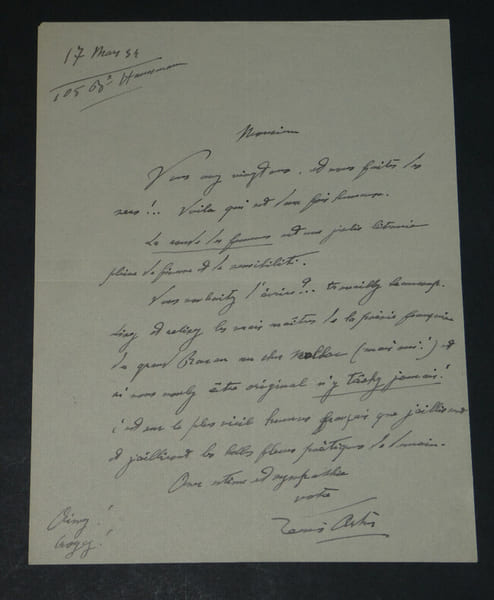 17 Mars 34
105 Bd Haussmann
Monsieur
Vous avez vingt ans, et vous faites des
vers!.. Voilà qui est deux fois heureux.
La ronde des femmes est une jolie
pleine de finesse et de sensibilité.
Vous souhaitez l'avenir?.. travaillez beaucoup.
lisez et relisez les vrais maîtres de la poésie française
du grand Racan au cher (mais oui!) et
si vous voulez être original n'y tâchez jamais!
c'est sur le plus vieil humus français que jaillissent
et jailliront les belles fleurs poétiques de demain.
Avec estime et sympathie
votre
Aimez!
Croyez!